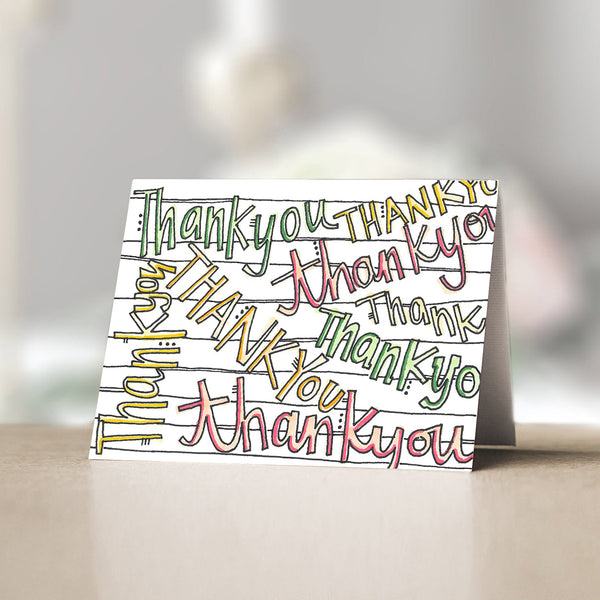 Thankyou
THANKYO
thankyou
Thankyou
THANKYOU
Thank
Thankyo
thankyou